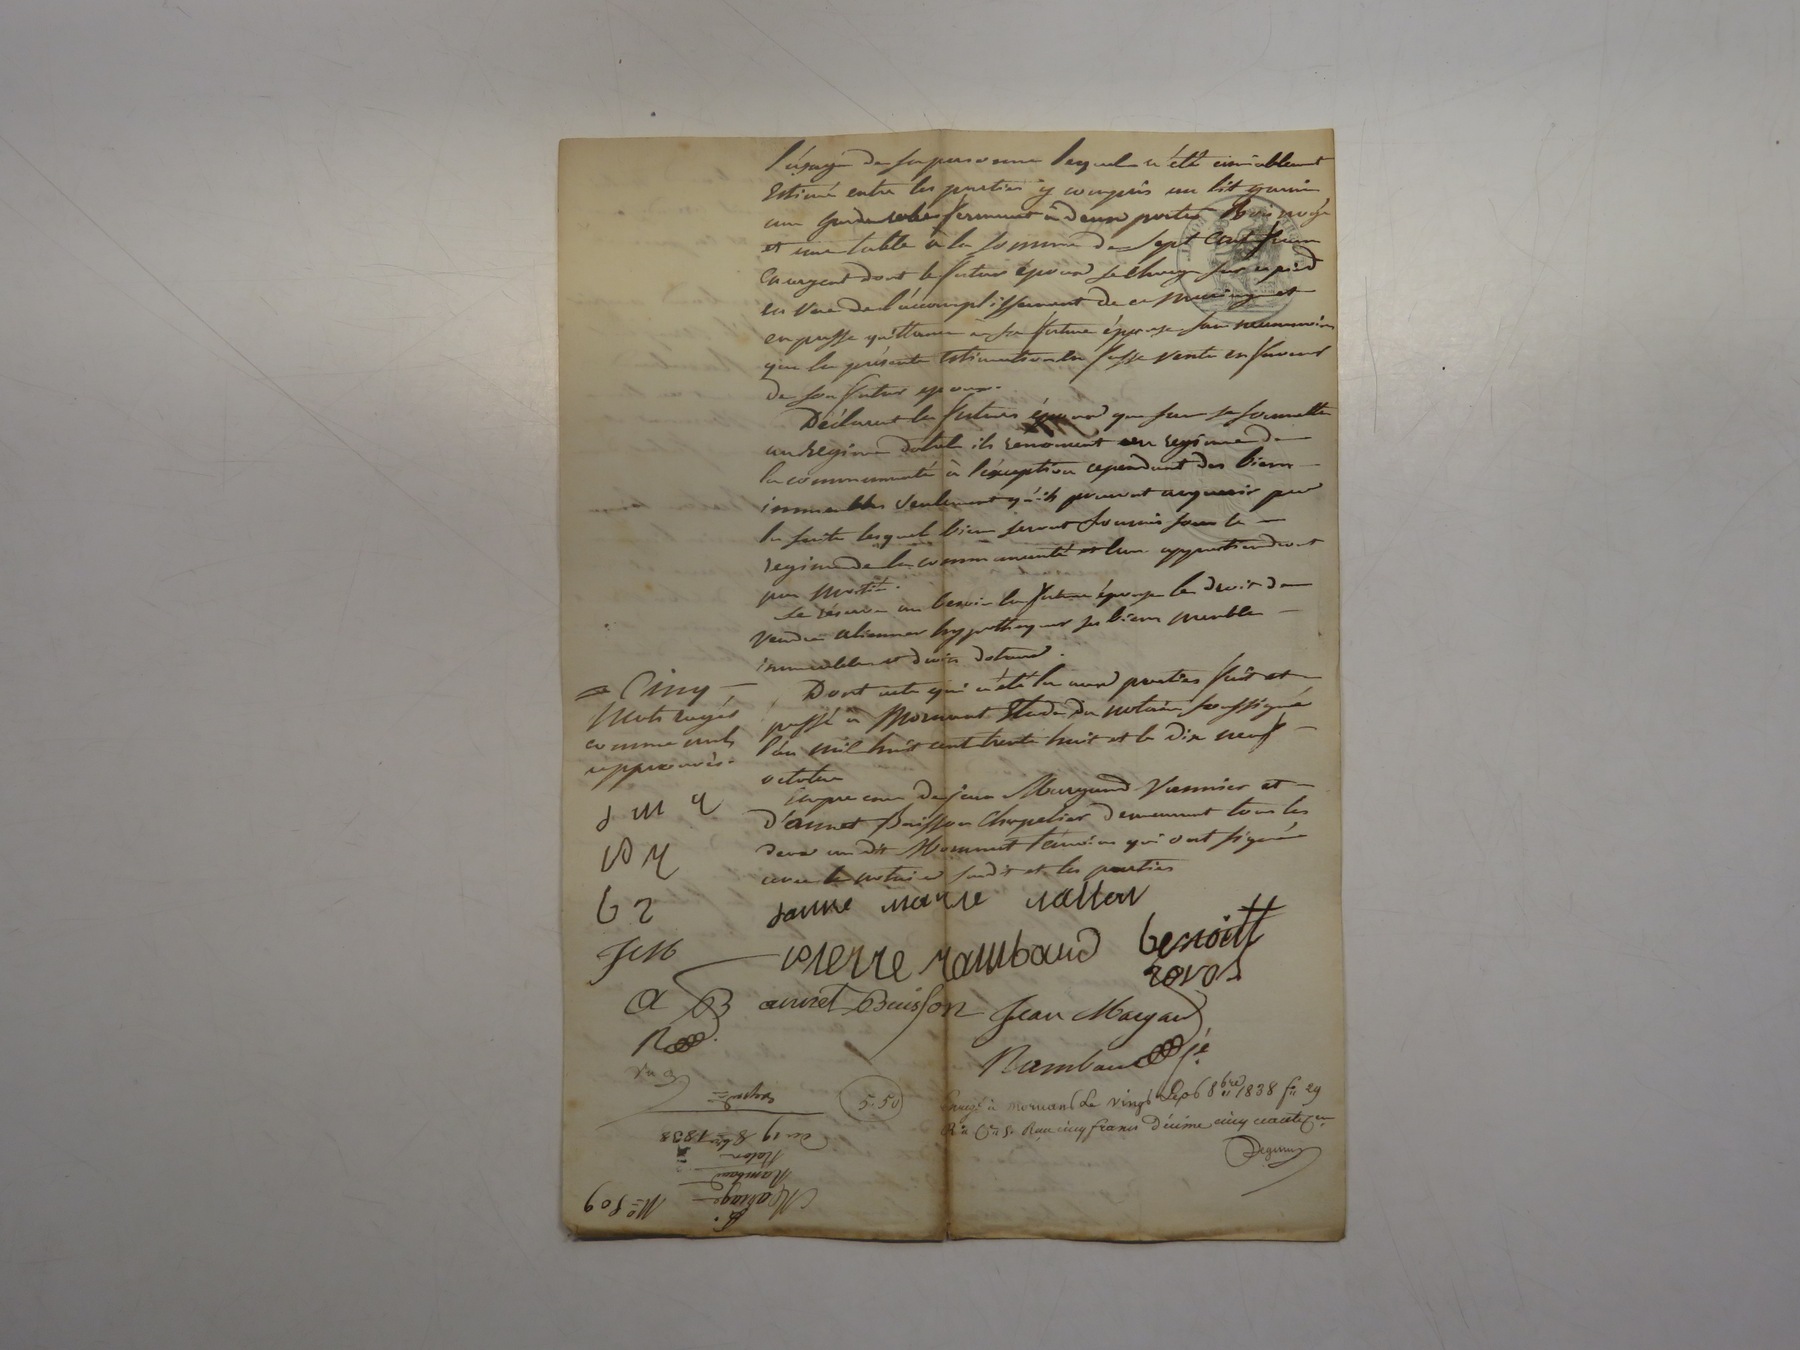 l'usage de sa personne lequel a été amiablement
Estimé entre les parties y compris un lit garni
une garderobes fermant à deux portes Bois noyer
et une table à la somme de Sept Cent francs
En argent dont le futur époux se charge sur ce pied
en vue de l'accomplissement de ce mariage et
en passe quittance a sa future épouse sans néanmoins
que la présente Estimation en fasse vente en faveur
de son futur epoux.
Déclarent les futurs époux que sans se soumettre
au Régime dotal ils renoncent au regime de
la communauté à l'éxception cependant des biens
immeubles Seulement qu'ils pourront acquerir par
la suite lesquels biens seront soumis sous le
regime de la communauté et leur appartiendront
par moitié.
Se réserve au besoin la future épouse le droit de
Vendre alienner hyppothequer ses biens meubles
immeubles et droits dotaux.
Dont acte qui a été lu aux parties fait et
passé à Mornant Etude du notaire soussigné
l'an mil huit cent trente huit et le dix neuf
octobre
en presence de jean Margand Vannier et
d'annet Buisson Chapelier demeurant tous les
deux au dit Mornant témoins qui ont signé
avec le notaire susdit et les parties
= Cinq
Mots rayés
comme nuls
approuvés.
J M
P R
b r
J M
a B
R
janne marie
pierre rambaud benoitt
annet Buisson Jean Margand
Rambaud
5.50
Enregé à mornant Le vingt Sept 8bre 1838 f° 29
Reçu cinq francs Décime cinquante Cen
N° 509
Mariage
Rambaud
Du 19 8bre 1838